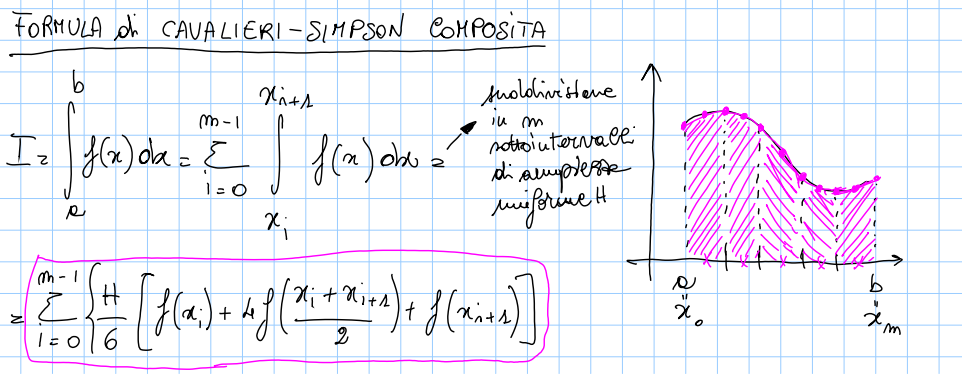 FORMULA di CAVALIERI-SIMPSON COMPOSITA
I = ∫_a^b f(x) dx = Σ_{i=0}^{m-1} ∫_{x_i}^{x_{i+1}} f(x) dx =
suddivisione
in m
sottointervalli
di ampiezza
uniforme H
= Σ_{i=0}^{m-1} { H/6 [ f(x_i) + 4f( (x_i + x_{i+1})/2 ) + f(x_{i+1}) ]
a b
= =
x_0 x_m